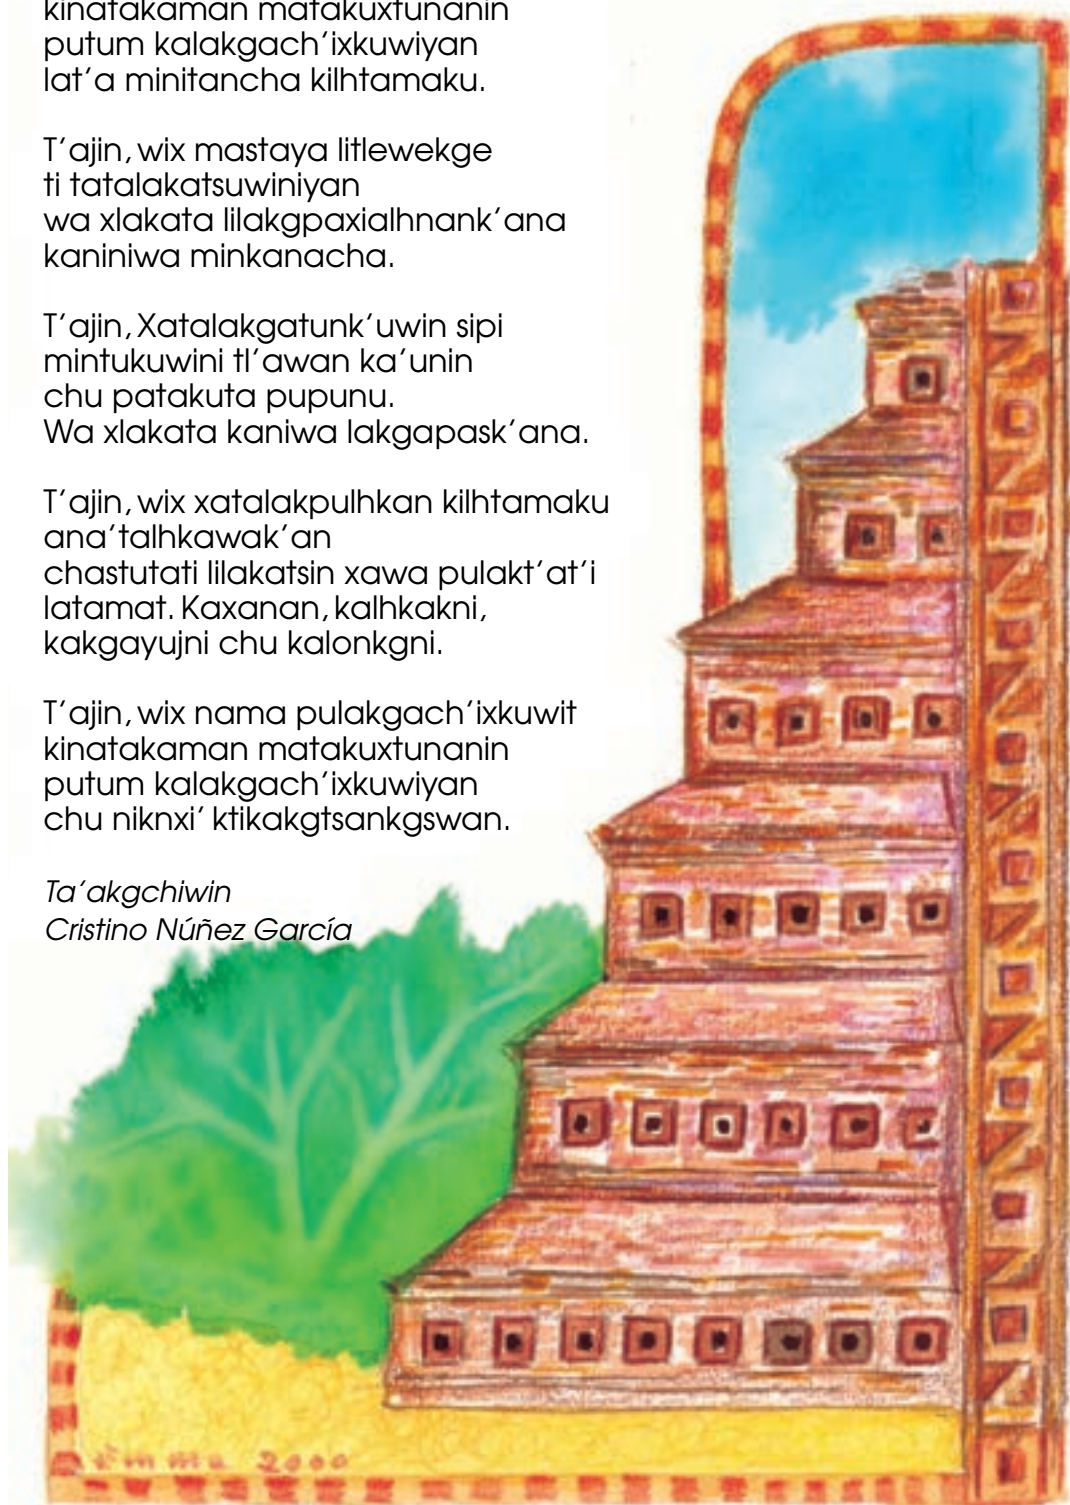 kinatakaman matakuxtunanin
putum kalakgach’ixkuwiyan
lat’a minitancha kilhtamaku.

T’ajin, wix mastaya litlewekge
ti tatalakatsuwiniyan
wa xlakata lilakgpaxialhnank’ana
kaniniwa minkanacha.

T’ajin, Xatalakgatunk’uwin sipi
mintukuwini tl’awan ka’unin
chu patakuta pupunu.
Wa xlakata kaniwa lakgapask’ana.

T’ajin, wix xatalakpulhkan kilhtamaku
ana’talhkawak’an
chastutati lilakatsin xawa pulakt’at’i
latamat. Kaxanan, kalhkakni,
kakgayujni chu kalonkgni.

T’ajin, wix nama pulakgach’ixkuwit
kinatakaman matakuxtunanin
putum kalakgach’ixkuwiyan
chu niknxi’ ktikakgtsankgswan.

Ta’akgchiwin
Cristino Núñez García

Emma 2000